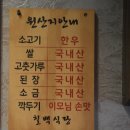 원산지안내
소고기 한우
쌀 국내산
고춧가루 국내산
된장 국내산
소금 국내산
깍두기 이모님 손맛
칠백식당